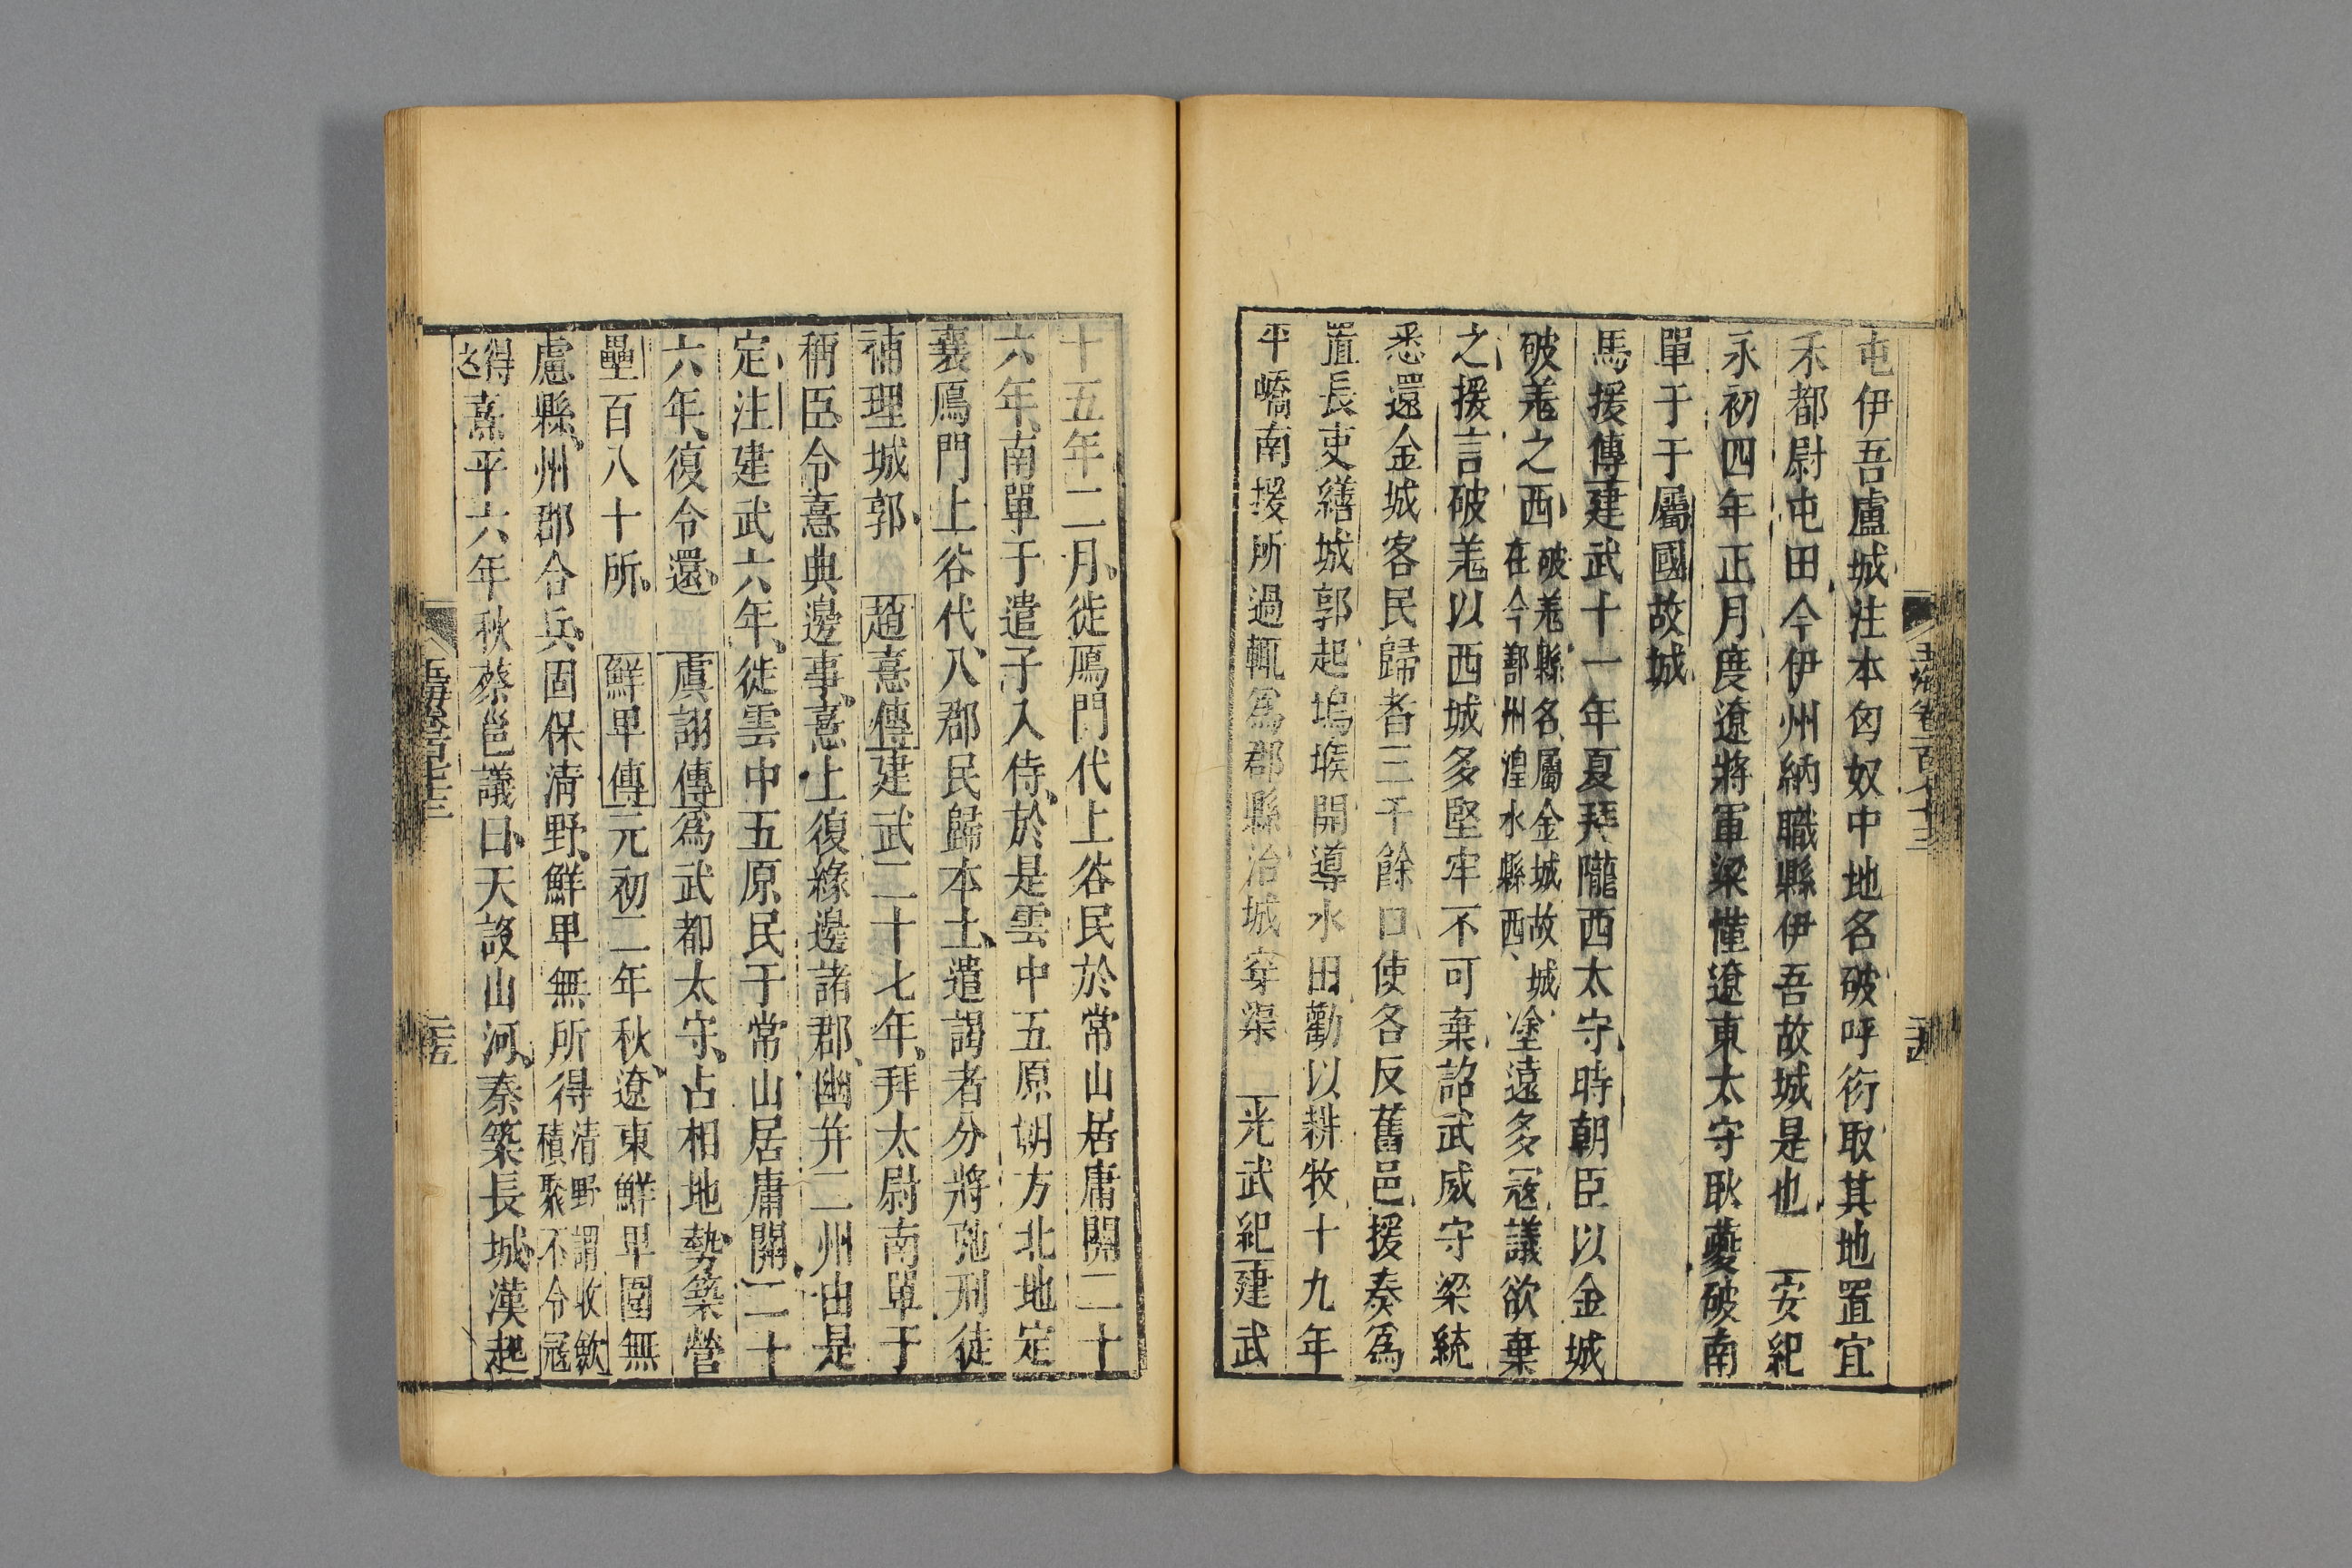 屯伊吾盧城注本匈奴中地名破呼衍取其地置宜
禾都尉屯田今伊州納職縣伊吾故城是也　安紀
永初四年正月度遼將軍梁慬遼東太守耿夔破南
單于于屬國故城
馬援傳建武十一年夏拜隴西太守時朝臣以金城
破羗之西破羗縣名屬金城故城在今鄯州湟水縣西塗遠多寇議欲棄
之援言破羗以西城多堅牢不可棄詔武威守梁統
悉還金城客民歸者三千餘口使各反舊邑援奏爲
置長吏繕城郭起塢堠開導水田勸以耕牧十九年
平嶠南援所過輒爲郡縣治城穿渠　光武紀建武
十五年二月徙鴈門代上谷民於常山居庸關二十
六年南單于遣子入侍於是雲中五原朔方北地定
襄鴈門上谷代八郡民歸本土遣謁者分將弛刑徒
補理城郭　趙憙傳建武二十七年拜太尉南單于
稱臣令憙典邊事憙上復緣邊諸郡幽并二州由是
定注建武六年徙雲中五原民于常山居庸關二十
六年復令還　虞詡傳爲武都太守占相地勢築營
壘百八十所　鮮卑傳元初二年秋遼東鮮卑圍無
慮縣州郡合兵固保清野鮮卑無所得清野謂收斂積聚不令寇
得之熹平六年秋蔡邕議曰天設山河秦築長城漢起